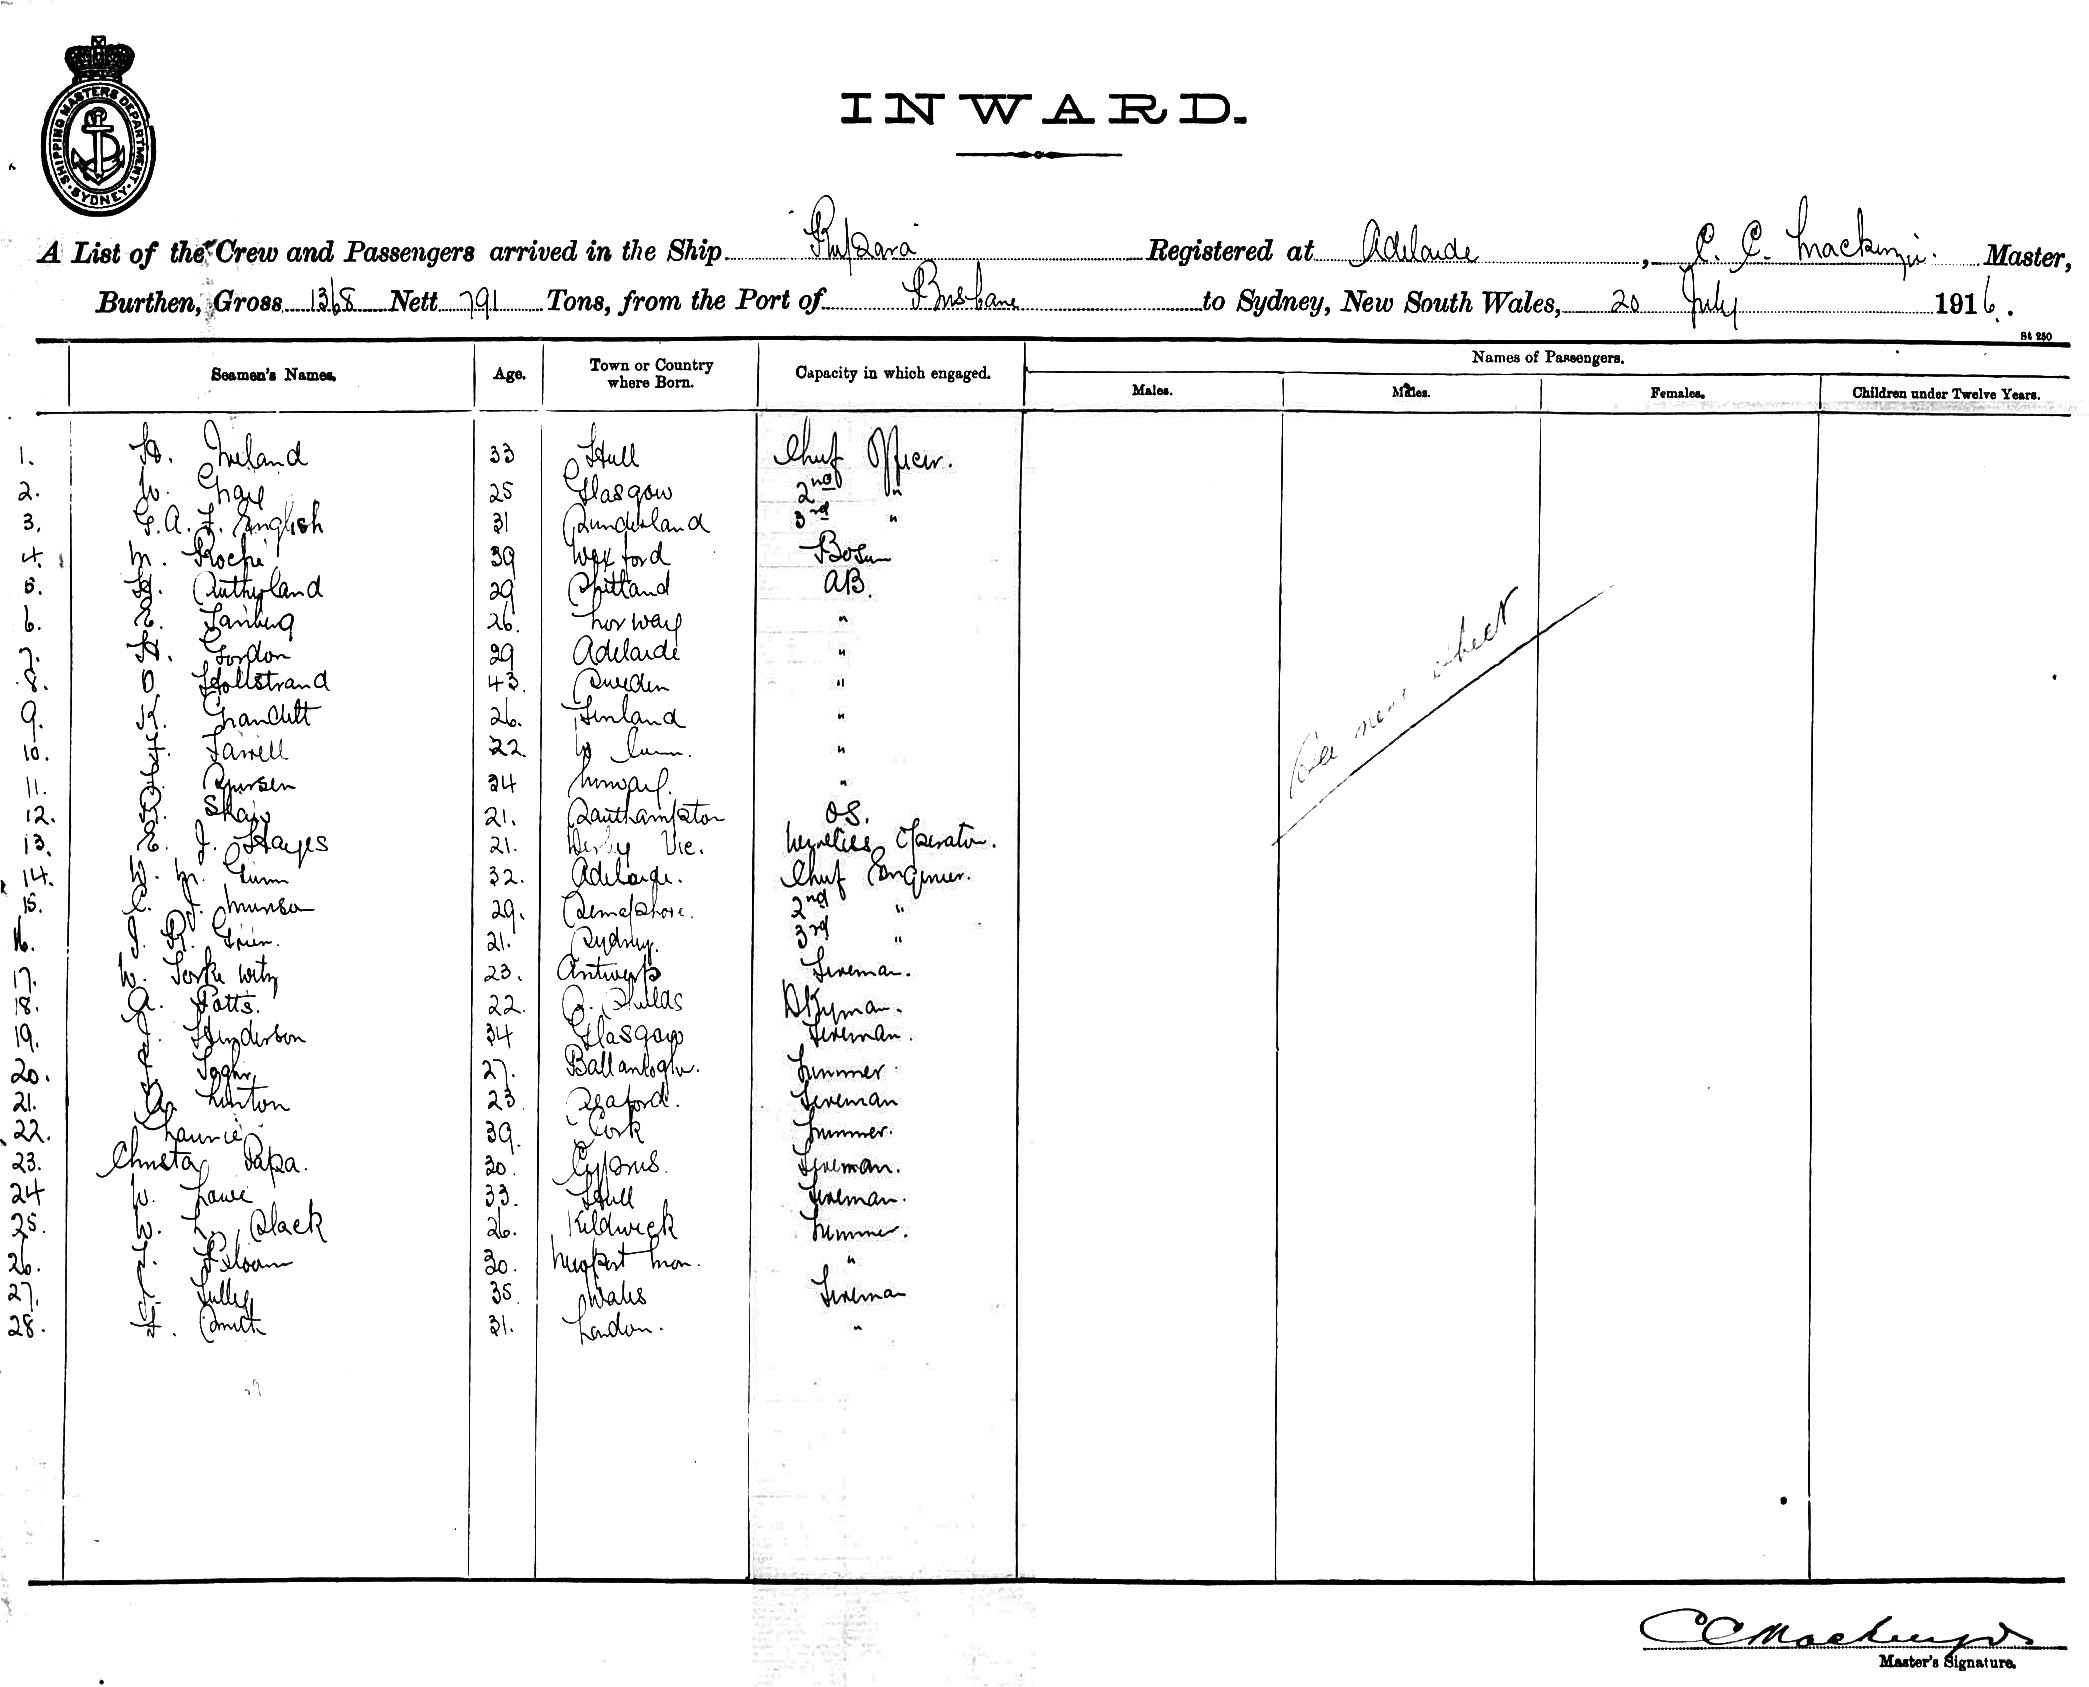 SHIPPING MASTERS DEPARTMENT. SYDNEY
INWARD.
A List of the Crew and Passengers arrived in the Ship Rupara Registered at Adelaide, C. C. Mackenzie. Master,
Burthen, Gross 1368 Nett 791 Tons, from the Port of Brisbane to Sydney, New South Wales, 20 July 1916.
St 250
Seamen's Names. Age. Town or Country where Born. Capacity in which engaged. Names of Passengers.
Males. Males. Females. Children under Twelve Years.
1. H. Ireland 33 Hull Chief Officer.
2. W. Gray 25 Glasgow 2nd "
3. G. A. F. English 31 Sunderland 3rd "
4. M. Roche 39 Wexford Bosun
5. H. Sutherland 29 Shetland AB.
6. E. 26. Norway "
7. H. Gordon 29 Adelaide "
8. O Hollstrand 43. Sweden "
9. K. 26. Finland "
10. Farrell 22. "
11. 34 Norway. "
12. Shaw 21. Southampton OS.
13. E. J. Hayes 21. Derby Vic. Wireless Operator.
14. W. M. Gunn 32. Adelaide. Chief Engineer.
15. C. J. Munson 29. Semaphore. 2nd "
16. R. Green. 21. Sydney. 3rd "
17. W. 23. Antwerp Fireman.
18. A. Potts. 22. S. Shields Dkyman.
19. J. Henderson 34 Glasgow Fireman.
20. 27. Trimmer.
21. A. Linton 23 Seaford. Fireman
22. Laurie 39. Cork Trimmer.
23. Christa Papa. 30. Cyprus. Fireman.
24 W. Lowe 33. Hull Fireman.
25. E. L. Slack 26. Kildwick Trimmer.
26. 30. Newport Mon. "
27. Tulley 35. Wales Fireman
28. F. Smith 31. London. "
See next sheet
C C Mackenzie
Master's Signature.